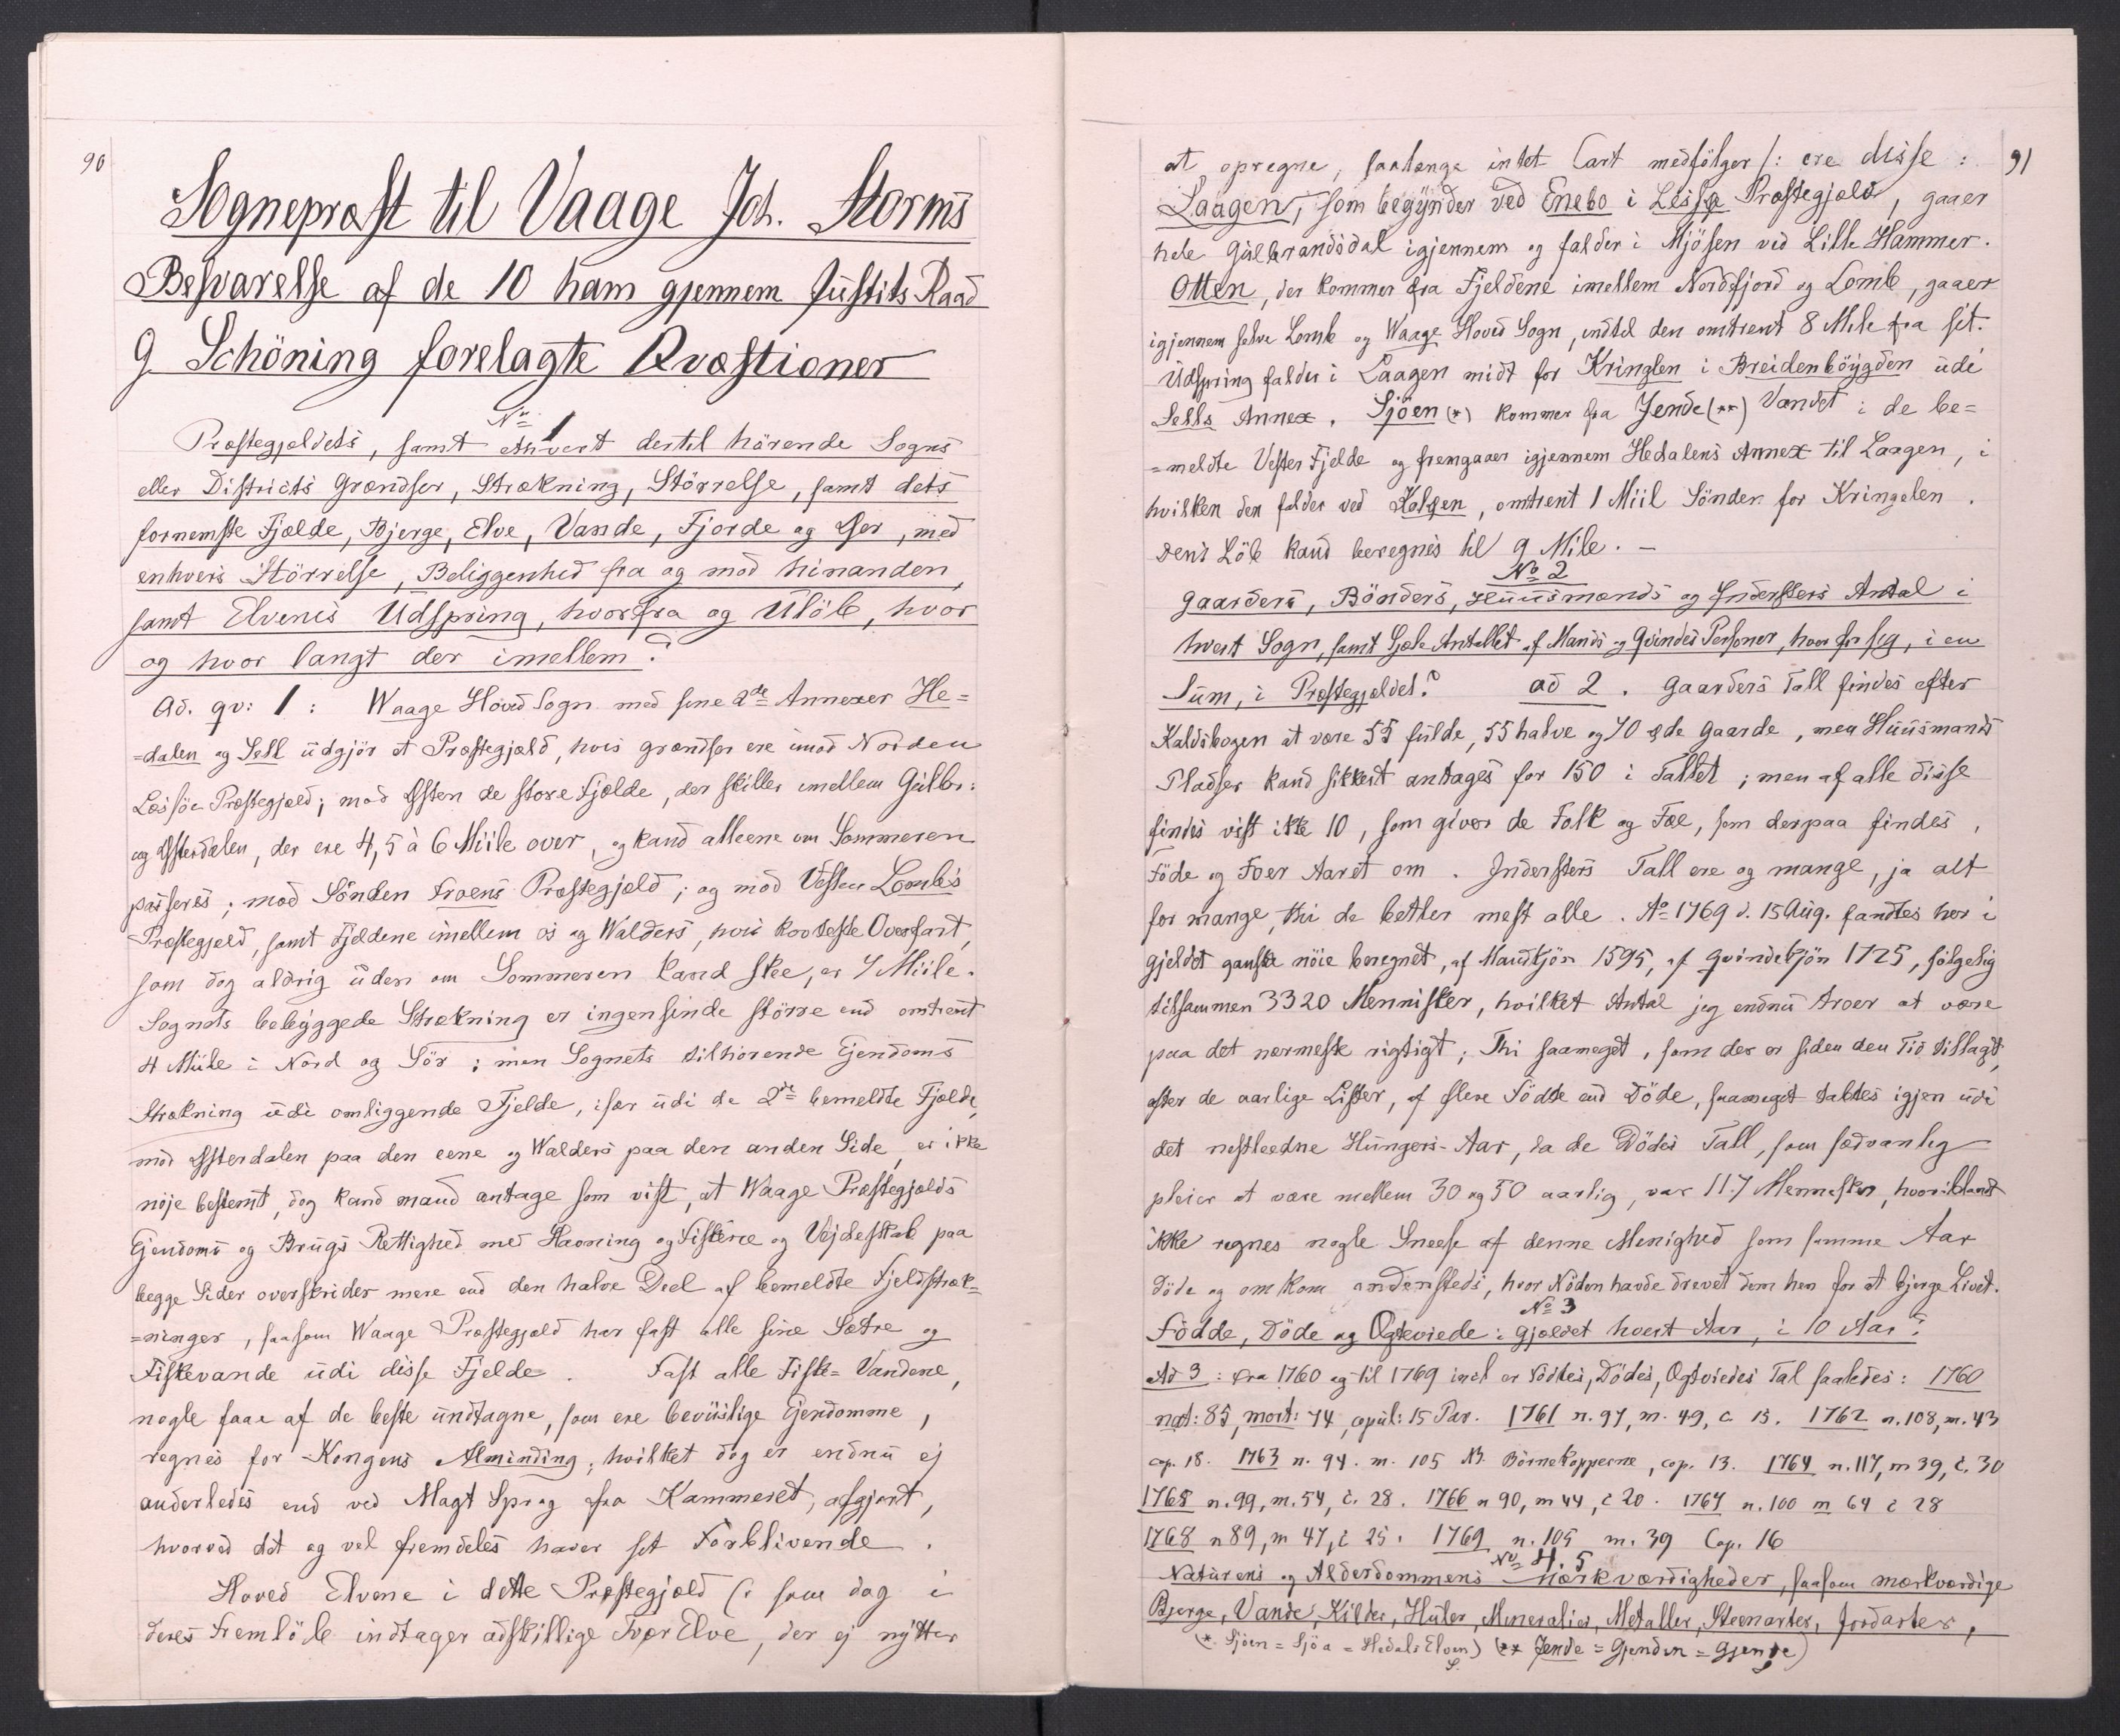 90
Sognepræst til Vaage Joh. Storms
Besvarelse af de 10 ham gjennem Justits Raad
G Schöning forelagte Qvæstioner
No 1
Præstegjældets, samt ethvert dertil hörende Sogns
eller Districts Grændser, Strækning, Större­lse, samt dets
fornemste Fjælde, Bjerge, Elve, Vande, Fjorde og Øer, med
enhvers Störrelse, Beliggenhed fra og mod hinanden,
samt Elvenes Udspring, hvorfra og Ulöb, hvor
og hvor langt der imellem?
Ad. qv: 1: Waage Hoved Sogn med sine 2de Annexer He=
=dalen og Sell udgjör et Præstegjæld, hvis grændser ere imod Norden
Læssöe Præstegjæld; mod Østen de store Fjælde, der skiller imellem Gulbr:
og Østerdalen, der ere 4,5 à 6 Miile over, og kand alleene om Sommeren
passeres; mod Sönden Froens Præstegjæld; og mod Vesten Lombs
Præstegjæld, samt Fjeldene imellem os og Walders, hvis korteste Overfart,
som dog aldrig uden om Sommeren kand skee, er 7 Miile.
Sognets bebyggede Strækning er ingensinde större end omtrent
4 Miile i Nord og Sör; men Sognets tilhörende Ejendoms
Strækning udi omliggende Fjelde, især udi de 2de bemeldte Fjælde,
mod Østerdalen paa den eene og Walders paa den anden Side, er ikke
nöje bestemt, dog kand mand antage som vist, at Waage Præstegjælds
Ejendoms og Brugs Rettighed med Havning og Fiskerie og Vejdeskab paa
begge Sider overskrider mere end den halve Deel af bemeldte Fjeldstræk=
=ninger, saasom Waage Præstegjæld har fast alle sine Sætre og
Fiskevande udi disse Fjelde. Fast alle Fiske= Vandene,
nogle faae af de beste undtagne, som ere beviislige Ejendomme,
regnes for Kongens Alminding, hvilket dog er endnu ej
anderledes end ved Magt Sprog fra Kammeret, afgjort,
hvorved det og vel fremdeles haver sit Forblivende.
Hoved Elvene i dette Præstegjæld (: som dog i
deres Fremlöb indtager adskillige Tvær Elve, der ej nytter
91
at opregne, saalænge intet Cart medfölger /: ere disse:
Laagen, som begynder ved Enebo i Lessø Præstegjæld, gaaer
hele Gulbrandsdal igjennem og falder i Mjösen ved Lille Hammer.
Otten, der kommer fra Fjeldene imellem Nordfjord og Lomb, gaaer
igjennem selve Lomb og Waage Hoved Sogn, indtil den omtrent 8 Mile fra sit
Udspring falder i Laagen midt for Kringlen i Breidenböygden udi
Sells Annex. Sjöen (*) kommer fra Jende (**) Vandet i de be=
=meldte Vester Fjelde og fremgaaer igjennem Hedalens Annex til Laagen, i
hvilken den falder ved Kolgen, omtrent 1 Miil Sönder for Kringelen.
Dens Löb kand beregnes til 9 Mile. —
No 2
Gaarders, Bönders, Huusmænds og Indersters Antal i
hvert Sogn, samt Sjæle Antallet af Mands og Qvindes Personer, hver for sig, i en
Sum, i Præstegjældet? ad 2. Gaarders Tall findes efter
Kaldsbogen at være 55 fulde, 55 halve og 70 øde Gaarde, men Huusmands
Pladser kand sikkert antages for 150 i Tallet; men af alle disse
findes vist ikke 10, som giver de Folk og Fæe, som derpaa findes,
Föde og Foer Aaret om. Indersters Tall ere og mange, ja alt
for mange, thi de betler mest alle. Ao 1769 d. 15 Aug. fandtes her i
gjeldet ganske nöie beregnet, af Mandkjön 1595, af Qvindekjön 1725, fölgelig
tilsammen 3320 Mennisker, hvilket Antal jeg endnu troer at være
paa det nærmeste rigtigt; Thi saameget, som der er siden den Tid tillagt,
efter de aarlige Lister, af flere Födte end Döde, saameget tabtes igjen udi
det nestleedne Hungers-Aar, da de Dödes Tall, som sædvanlig
pleier at være mellem 30 og 50 aarlig, var 117 Mennesker, hvoriblandt
ikke regnes nogle Sneese af denne Menighed som samme Aar
döde og omkom andensteds, hvor Nöden havde drevet dem hen for at bjerge Livet.
No 3
Födde, Döde og Egteviede i gjældet hvert Aar, i 10 Aar?
Ad 3: Fra 1760 og til 1769 incl er Födtes, Dödes, Egteviedes Tal saaledes: 1760
nat: 85, mort: 74, copul: 15 Par. 1761 n. 97, m. 49, c. 15. 1762 n. 108, m. 43
cop. 18. 1763 n. 94. m. 105 NB. Börnekopperne, cop. 13. 1764 n. 117, m 39, c. 30
1765 n. 99, m. 54, c. 28. 1766 n 90, m 44, c 20. 1767 n. 100 m 64 c 28
1768 n 89, m 47, c 25. 1769 n. 105 m. 39 Cop. 16
No 4. 5
Naturens og Alderdommens Mærkværdigheder, saasom mærkværdige
Bjerge, Vande, Kilder, Huler, Mineralier, Metaller, Steenarter, Jordarter,
(* Sjöen = Sjöa = Hedals Elven) (** Jende = Gjenden = Gjende)
S.